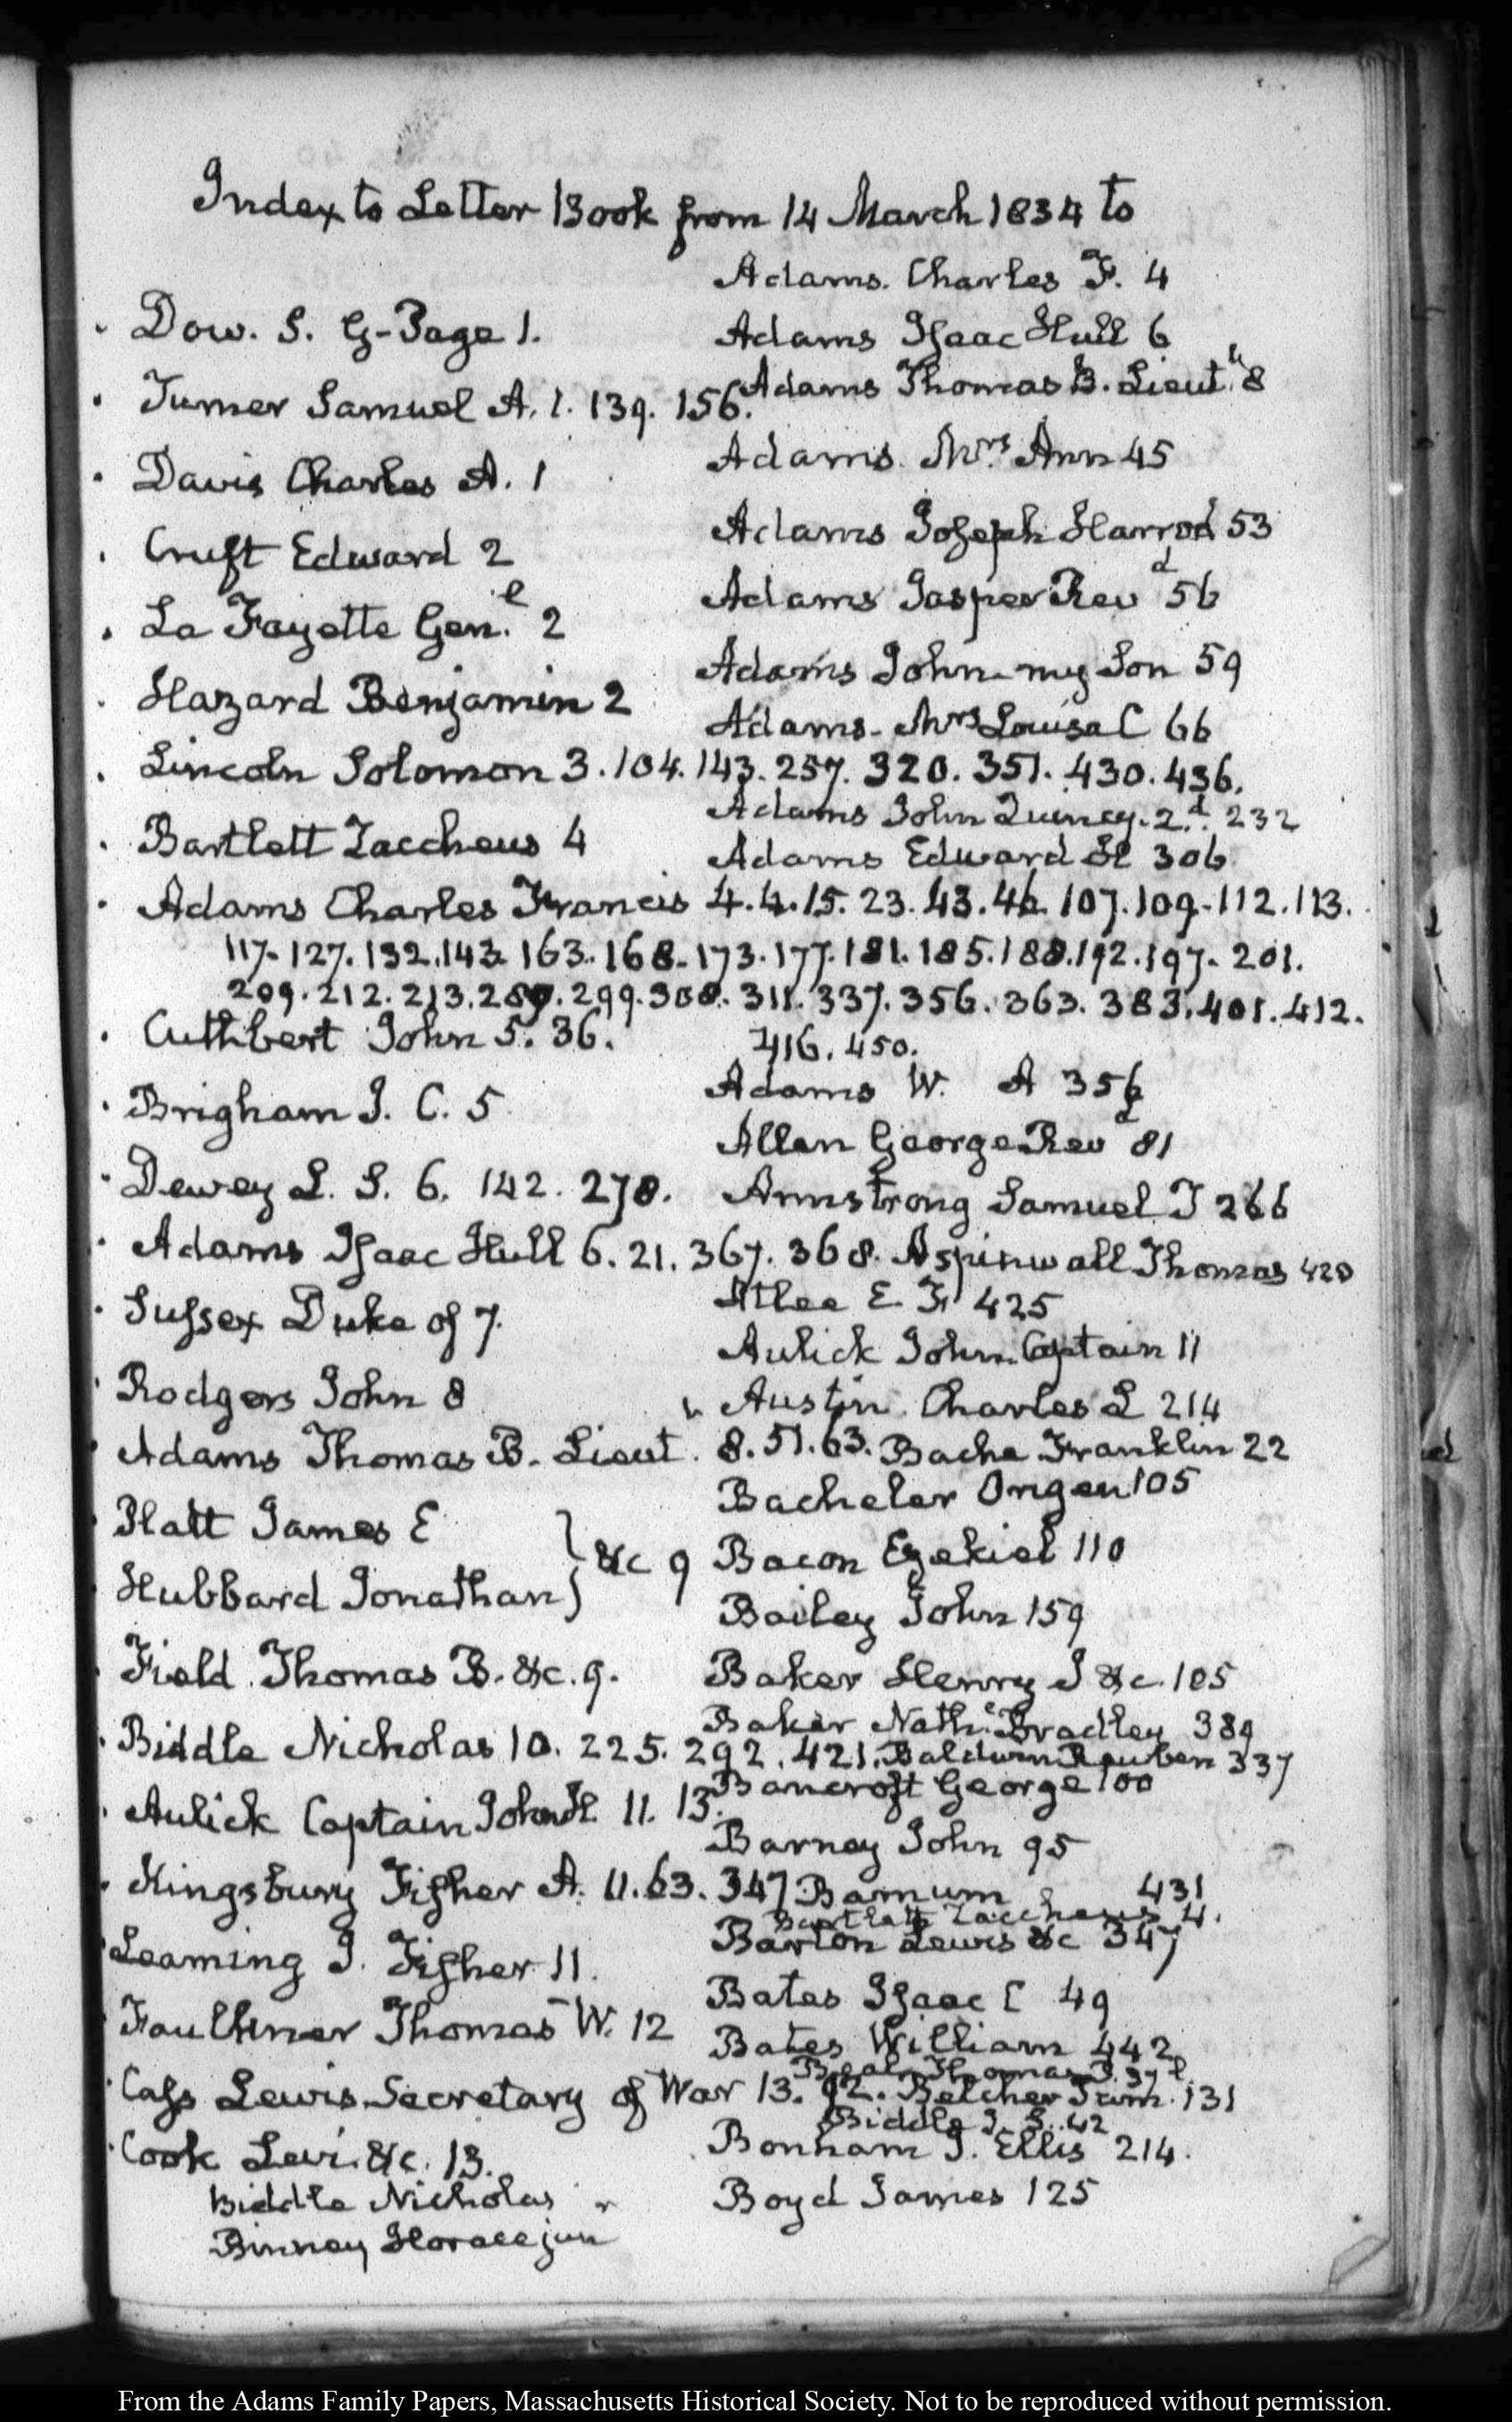 Index to Letter Book from 14 March 1834 to
Dow. S. G - Page 1.
Turner Samuel A. 1. 139. 156.
Davis Charles A. 1
Cruft Edward 2
La Fayette Gen.l 2
Hazard Benjamin 2
Lincoln Solomon 3. 104. 143. 257. 320. 351. 430. 436.
Bartlett Zaccheus 4
Adams Charles Francis 4. 4. 15. 23. 43. 46. 107. 109. 112. 113.
117. 127. 132. 143. 163. 168. 173. 177. 181. 185. 188. 192. 197. 201.
209. 212. 213. 299. 308. 311. 337. 356. 363. 383. 401. 412.
416. 450.
Cuthbert John 5. 36.
Brigham J. C. 5
Dewey L. S. 6. 142. 278.
Adams Isaac Hull 6. 21. 367. 368.
Sussex Duke of 7.
Rodgers John 8
Adams Thomas B. Lieut. 8. 51. 63.
Platt James E
Hubbard Jonathan } &c 9
Field Thomas B. &c. 9.
Biddle Nicholas 10. 225. 292. 421.
Aulick Captain John H. 11. 13.
Kingsbury Fisher A. 11. 63. 347
Leaming J. Fisher 11.
Faulkner Thomas W. 12
Cass Lewis Secretary of War 13. 92.
Cook Levi &c. 13.
Biddle Nicholas
Binney Horace jun
Adams. Charles F. 4
Adams Isaac Hull 6
Adams Thomas B. Lieut. 8
Adams. Mrs Ann 45
Adams Joseph Harrod 53
Adams Jasper Revd 56
Adams John my Son 59
Adams - Mrs Louisa C 66
Adams John Quincy. 2.d 232
Adams Edward H 306
Adams W. A 356
Allen George Revd 81
Armstrong Samuel T 266
Aspinwall Thomas 420
Atlee E. F 425
Aulick John Captain 11
Austin Charles L 214
Bache Franklin 22
Bacheler Origen 105
Bacon Ezekiel 110
Bailey John 159
Baker Henry J &c. 105
Baker Nath.l Bradley 389
Baldwin Reuben 337
Bancroft George 100
Barney John 95
Barnum 431
Bartlett Zaccheus 4.
Barton Lewis &c 347
Bates Isaac C 49
Bates William 442
Beale Thomas
Belcher 131
Biddle J. S. 42
Bonham J. Ellis 214.
Boyd James 125
From the Adams Family Papers, Massachusetts Historical Society. Not to be reproduced without permission.